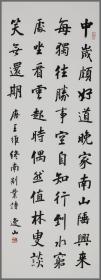 中歲頗好道晚家南山陲興來
每獨往勝事空自知行到水窮
處坐看雲起時偶然值林叟談
笑無還期 唐王維終南別業詩